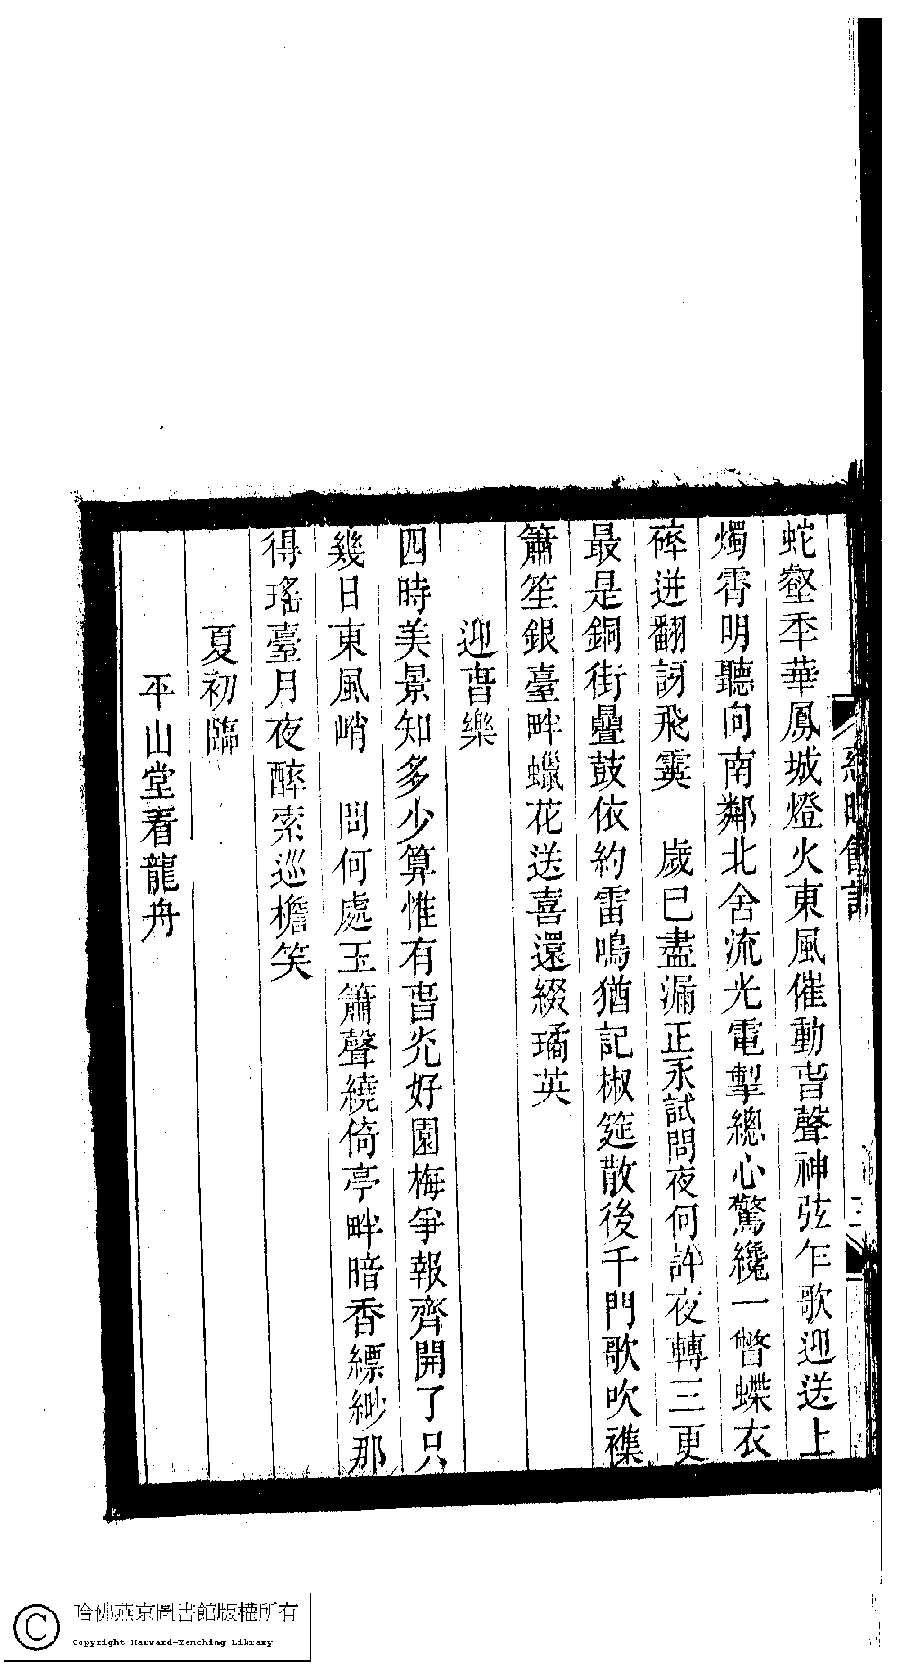 蛇壑秊華鳳城燈火東風催動旾聲神弦乍歌迎送上
燭霄明聽向南鄰北舍流光電掣總心驚纔一瞥蝶衣
碎迸翻訝飛霙　歲已盡漏正永試問夜何許夜轉三更
最是銅街疊鼓依約雷鳴猶記椒筵散後千門歌吹襍
簫笙銀臺畔蠟花送喜還綴璚英
迎旾樂
四時美景知多少算惟有旾光好園梅爭報齊開了只
幾日東風峭　問何處玉簫聲繞倚亭畔暗香縹緲那
得瑤臺月夜醉索巡檐笑
夏初臨
平山堂看龍舟
哈佛燕京圖書館版權所有
Copyright Harvard-Yenching Library